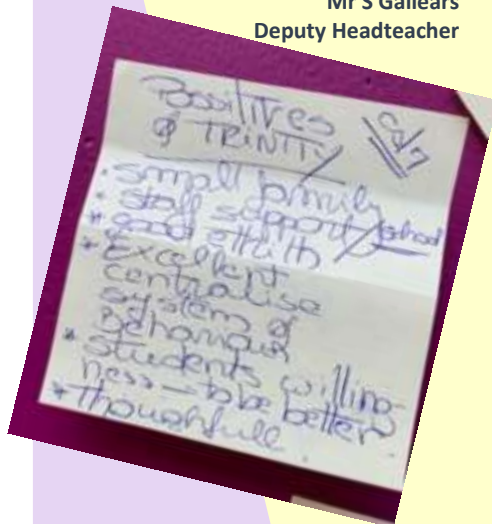 Mr S Gallears
Deputy Headteacher
Possitives
@ TRINITY
• small family
• staff support / school
* good
* Excellent
centralise
system of
Behaviour
* students willing-
ness – to be better
* thoughtfull